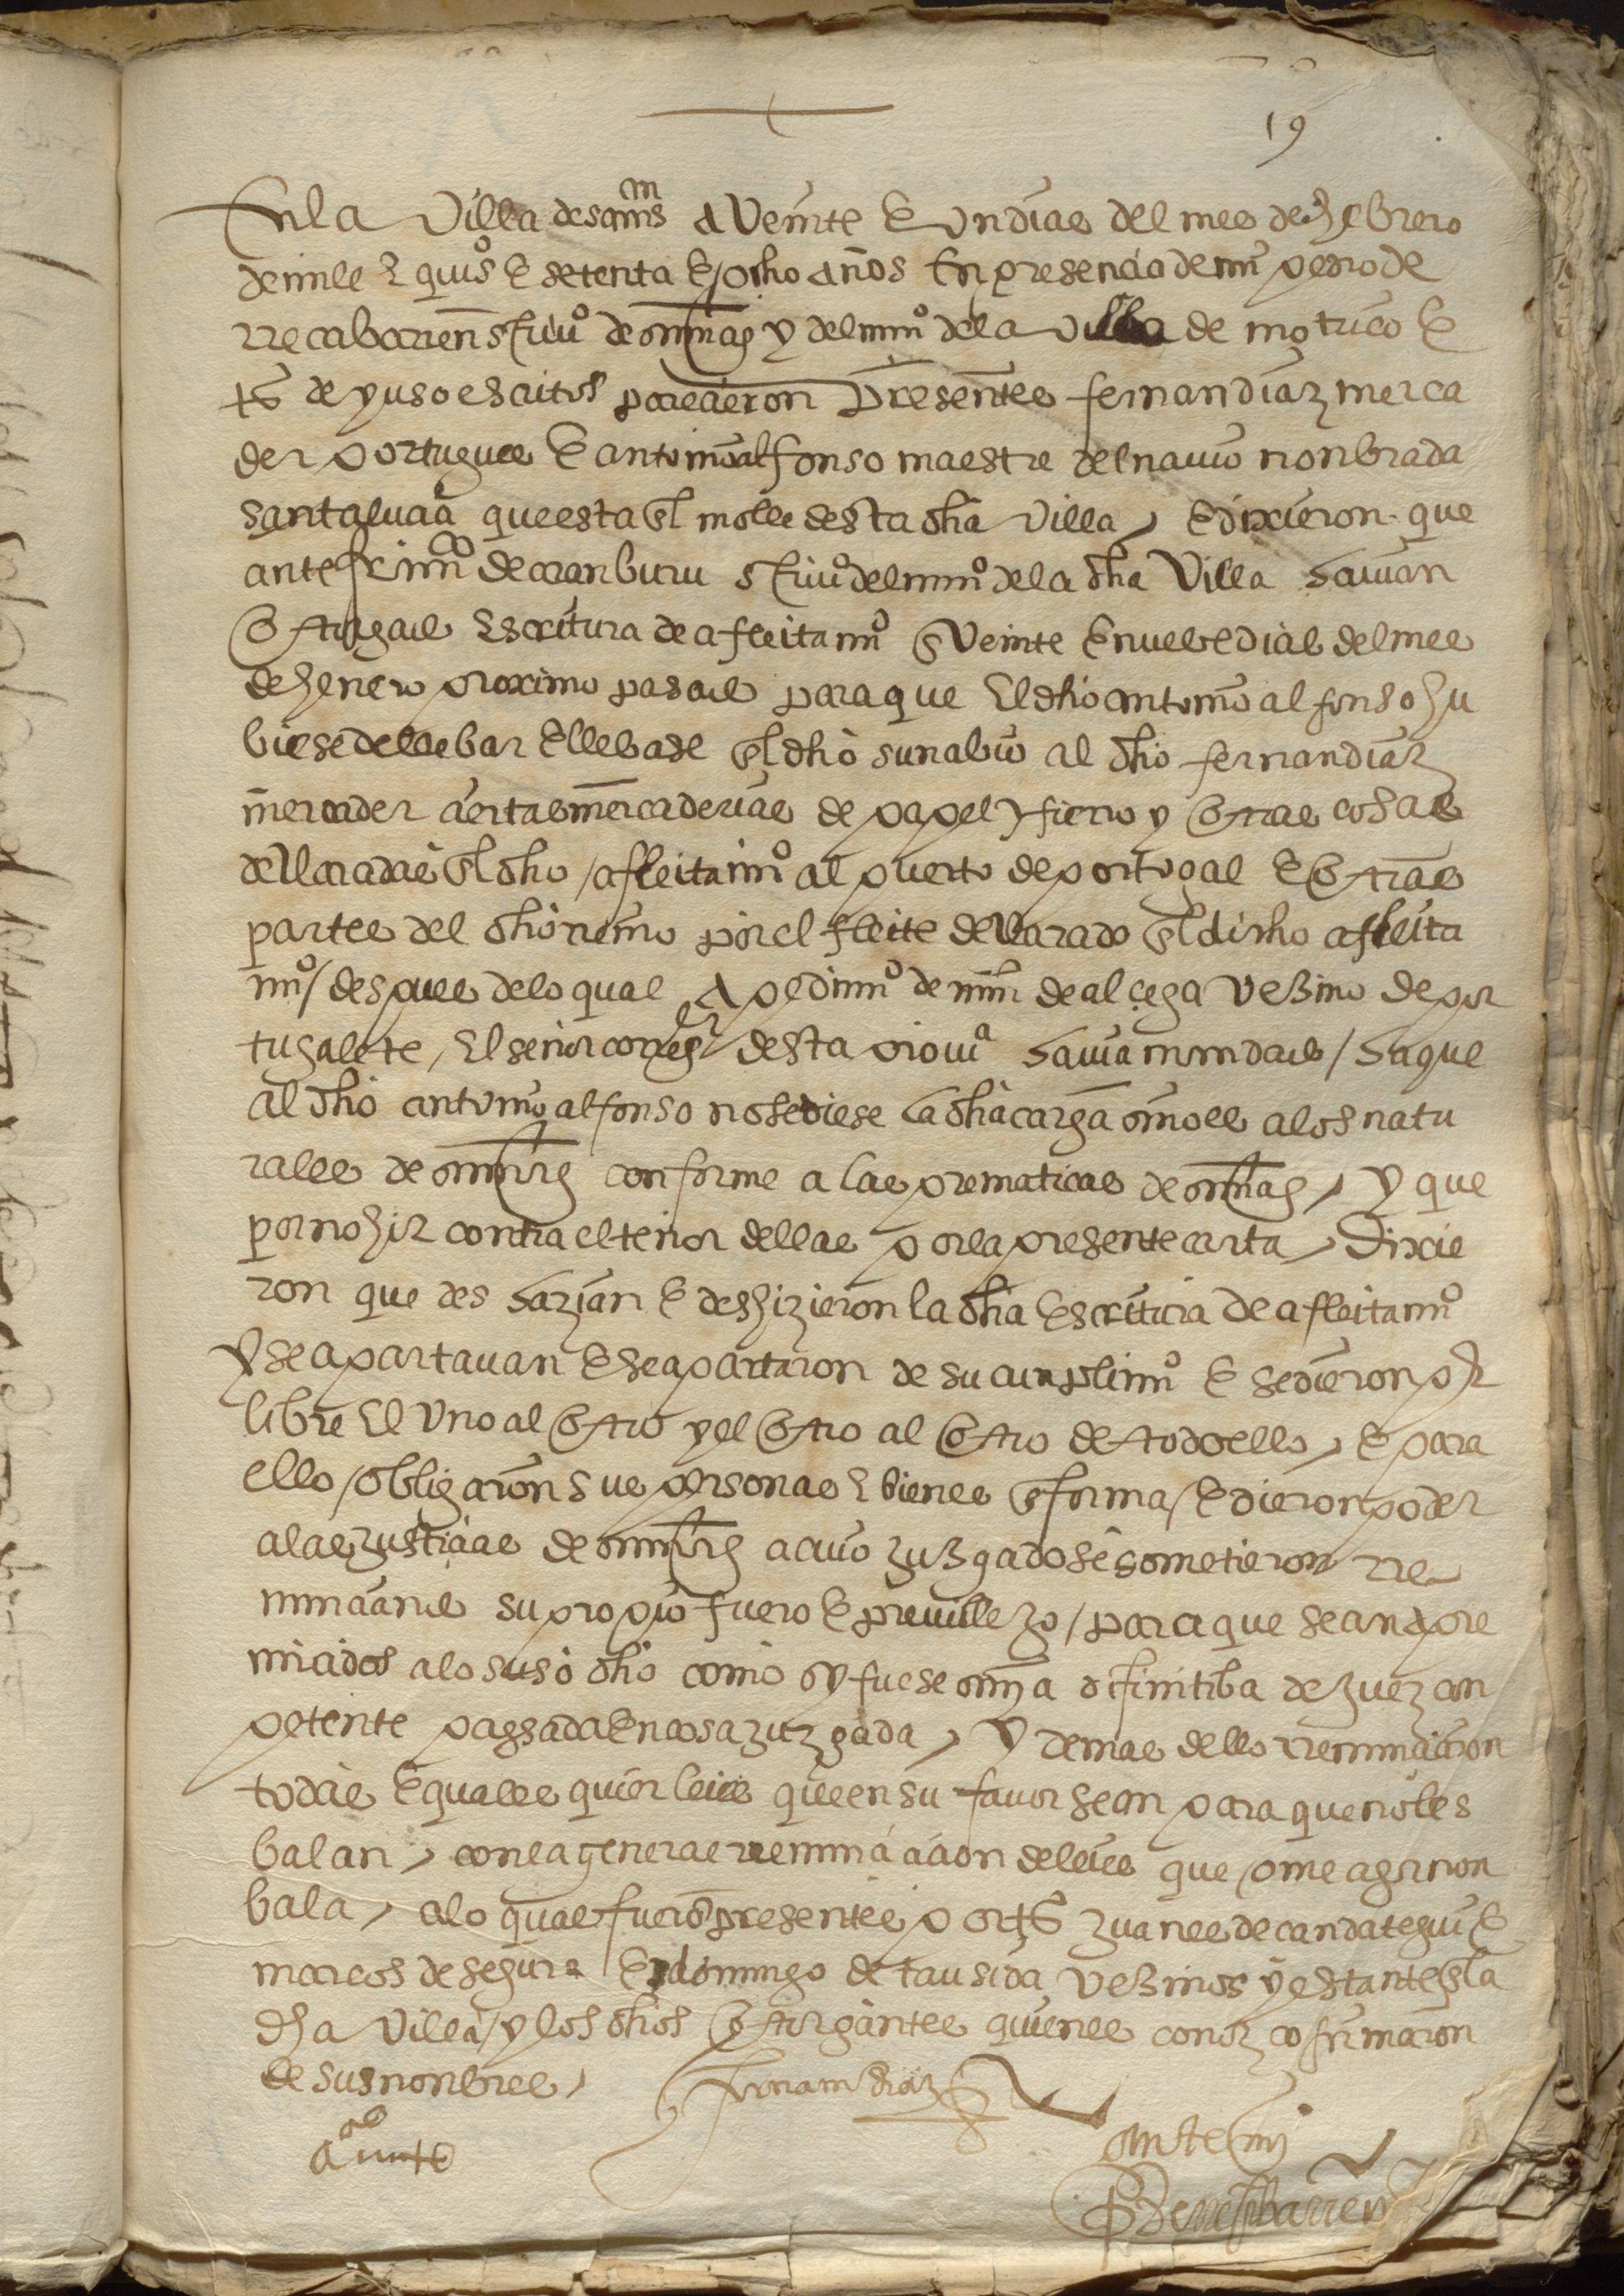 19
En la Villa de san sn a Veinte E Un dias del mes de hebrero
de mill E quios E setenta E ocho años En presencia de mi pedro de
rrecabarren scriuo de su mag y del numo de la Villa de motrico E
tos de yuso escritos parecieron presentes fernan diaz merca
der portugues E antonio alfonso maestre del nauio nonbrada
santa lucia que esta En el molle desta dha villa, E dixieron que
ante de aranburu scriuo del numo de la dha Villa hauian
Otorgado Escritura de afleitamio En Veinte E nuebe dias del mes
de henero proximo pasado para que El dho antonio alfonso hu
biese de llebar E llebase En el dho su nabio al dho fernan diaz
mercader ciertas mercaderias de papel y fierro y otras cosas
declaradas En el dho afleitamio al puerto de portogal E otras
partes del dho reino por el fleite declarado En el dicho afleita
mio / despues de lo qual A pedimio de de alcega vezino de por
tugalete, El señor corregor desta proua hauia mandado / ha que
al dho antonio alfonso no se diese la dha carga sino es a los natu
rales de sus rreinos conforme a las prematicas de su mag, y que
por no hir contra el tenor dellas por la presente carta, Dixie
ron que des hazian E deshizieron la dha Escritura de afleitamio
y se apartauan E se apartaron de su cunplimio E se dieron por
libre El Uno al Otro y el Otro al Otro de todo ello, E para
ello / obligaron sus personas E bienes En forma / E dieron poder
a las zusticias de su mag a cuio zuzgado se sometieron rre
nunciando su propio fuero E preuillezo / para que sean apre
miados a lo suso dho como sy fuese sentencia difinitiba de zuez con
petente pagsada En cosa zuzgada, y demas dello rrenunciaron
todas E quales quier leies que en su fauor sean para que no les
balan, con la general rrenunciacion de leies que ome aga non
bala, a lo qual fueron presentes por tos zuanes de candategui E
marcos de segura E domingo de tausida vezinos y estantes En la
dha Villa / y los dhos Otorgantes quienes conozco firmaron
de sus nonbres,
fernam diaz
Ante mi
Po de rrecabarren